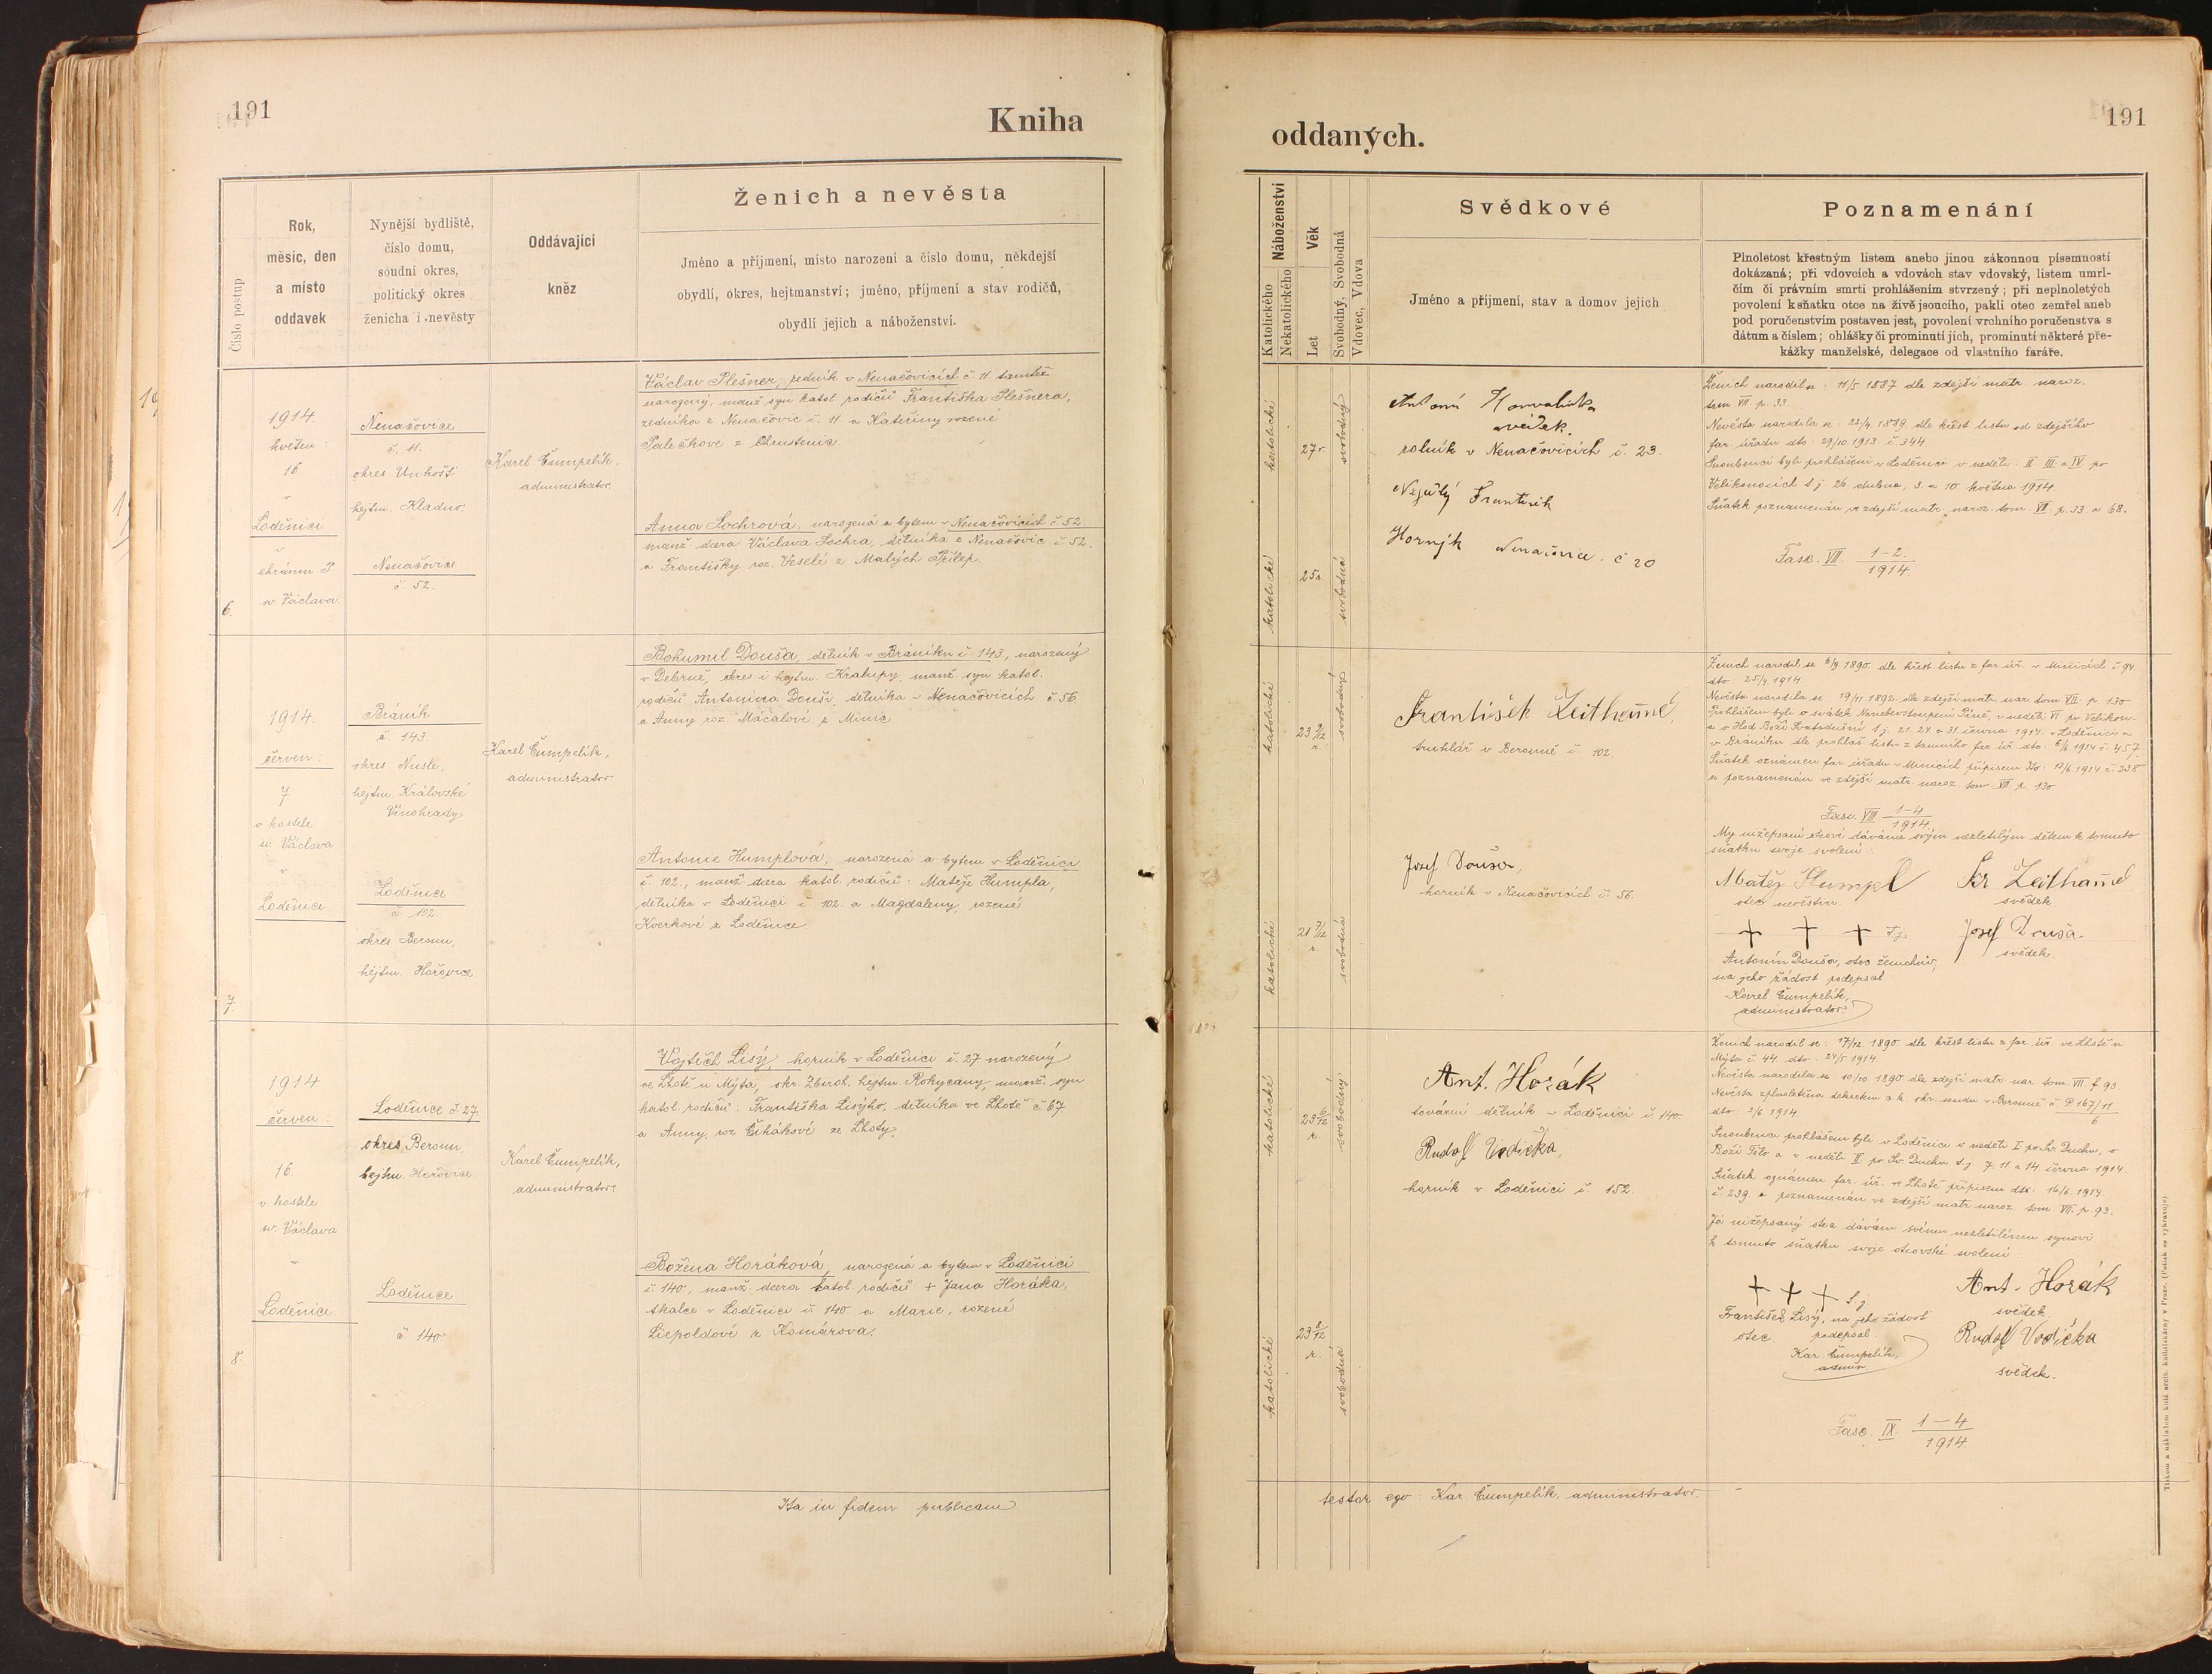 191
Kniha
Číslo postup
Rok,
měsíc, den
a místo
oddavek
Nynější bydliště,
číslo domu,
soudní okres,
politický okres
ženicha i nevěsty
Oddávající
kněz
Ženich a nevěsta
Jméno a příjmení, místo narození a číslo domu, někdejší
obydlí, okres, hejtmanství; jméno, příjmení a stav rodičů,
obydlí jejich a náboženství.
6.
1914
květen:
16
v
Loděnici
v
chrámu P
sv. Václava.
Nenačovice
č. 11.
okres Unhošť
hejtm. Kladno.
Nenačovice
č. 52.
Karel Čumpelík,
administrator.
Václav Plešner, zedník v Nenačovicích č. 11 tamtéž
narozený, manž. syn katol. rodičů Františka Plešnera,
zedníka z Nenačovic č. 11 a Kateřiny rozené
Palečkové z Chrustenic.
Anna Sochrová, narozená a bytem v Nenačovicích č. 52
manž. dcera Václava Sochra, dělníka z Nenačovic č. 52.
a Františky roz. Veselé z Malých Přílep.
7.
1914.
červen:
7
v kostele
sv. Václava
v
Loděnici
Bráník
č. 143
okres Nusle,
hejtm. Královské
Vinohrady
Loděnice
č. 102.
okres Beroun,
hejtm. Hořovice
Karel Čumpelík,
administrator
Bohumil Douša, dělník v Bráníku č. 143, narozený
v Debrně, okres i hejtm. Kralupy, manž. syn katol.
rodičů Antonína Douši, dělníka v Nenačovicích č. 56
a Anny roz. Mácalové z Minic
Antonie Humplová, narozená a bytem v Loděnici
č. 102., manž. dcera katol. rodičů: Matěje Humpla,
dělníka v Loděnici č. 102. a Magdaleny, rozené
Kverkové z Loděnice.
8.
1914
červen:
16.
v kostele
sv. Václava
v
Loděnici
Loděnice č. 27.
okres Beroun,
hejtm. Hořovice
Loděnice
č. 140
Karel Čumpelík,
administrator.
Vojtěch Lisý, horník v Loděnici č. 27 narozený
ve Lhotě u Mýta, okr. Zbiroh, hejtm. Rokycany, manž. syn
katol. rodičů: Františka Lisýho, dělníka ve Lhotě č. 67
a Anny, roz. Čihákové ze Lhoty.
Božena Horáková, narozená a bytem v Loděnici
č. 140, manž. dcera katol. rodičů: + Jana Horáka,
skalce v Loděnici č. 140 a Marie, rozené
Liepoldové z Komárova.
Ita in fidem publicam
oddaných.
191
Náboženství
Katolického
Nekatolického
Věk
Let
Svobodný, Svobodná
Vdovec, Vdova
Svědkové
Jméno a příjmení, stav a domov jejich
Poznamenání
Plnoletost křestným listem anebo jinou zákonnou písemností
dokázaná; při vdovcích a vdovách stav vdovský, listem umrl-
čím či právním smrti prohlášením stvrzený; při neplnoletých
povolení k sňatku otce na živě jsoucího, pakli otec zemřel aneb
pod poručenstvím postaven jest, povolení vrchního poručenstva s
dátum a číslem; ohlášky či prominutí jich, prominutí některé pře-
kážky manželské, delegace od vlastního faráře.
katolické
27 r.
svobodný
katolické
25 r.
svobodná
Antonín
svědek.
rolník v Nenačovicích č. 23.
František
Horník Nenačovice č 20
Ženich narodil se: 11/5 1887 dle zdejší matr. naroz.
tom VII p. 33
Nevěsta narodila se: 23/4. 1889 dle křest. listu od zdejšího
far. úřadu dto: 29/10 1913. č. 344.
Snoubenci byli prohlášeni v Loděnici v neděli: II III a IV po
Velikonocích t. j. 26. dubna, 3. a 10. května 1914.
Sňatek poznamenán ve zdejší matr. naroz. tom VII. p. 33 a 68.
Fasc. VII. 1-2.
1914.
katolické
23 9/12
r.
svobodný
katolické
21 7/12
r.
svobodná
František Zeithaml,
truhlář v Berouně č. 102.
Josef Douša,
horník v Nenačovicích č. 56.
Ženich narodil se 6/9 1890 dle křest. listu z far. úř. v Minicích č. 94
dto 25/4 1914
Nevěsta narodila se: 19/11 1892. dle zdejší matr. nar. tom VII. p. 130
Prohlášeni byli o svátek Nanebevstoupení Páně, v neděli VI po Velikon.
a o Hod Boží Svatodušní t. j. 21. 24 a 31. června 1914. v Loděnici a
v Bráníku dle prohláš. listu z tamního far. úř. dto: 6/6 1914 č. 457.
Sňatek oznámen far. úřadu v Minicích přípisem dto: 13/6. 1914. č. 238
a poznamenán ve zdejší matr. naroz. tom VII. p. 130
Fasc. VIII 1-4
1914.
My nížepsaní otcové dáváme svým nezletilým dětem k tomuto
sňatku svoje svolení:
Matěj Humpl
otec nevěstin.
Fr Zeithaml
svědek
+ + + t. j.
Antonín Douša, otec ženichův,
na jeho žádost podepsal
Karel Čumpelík,
administrator.
Josef Douša.
svědek.
katolické
23 6/12
r.
svobodný
katolické
23 8/12
r.
svobodná
Ant. Horák
tovární dělník v Loděnici č. 140
Rudolf Vodička,
horník v Loděnici č. 152.
Ženich narodil se: 17/12 1890 dle křest. listu z far. úř. ve Lhotě u
Mýta č. 44 dto: 24/5 1914
Nevěsta narodila se 10/10 1890 dle zdejší matr. nar. tom. VII. f. 93
Nevěsta zplnoletěna dekretem c. k. okr. soudu v Berouně č. P 167/11
6
dto: 3/6. 1914
Snoubenci prohlášeni byli v Loděnici v neděli I po Sv. Duchu, o
Boží Tělo a v neděli II po Sv. Duchu t. j. 7. 11. a 14. června 1914.
Sňatek oznámen far. úř. ve Lhotě přípisem dto: 16/6. 1914
č. 239 a poznamenán ve zdejší matr. naroz. tom VII. p. 93.
Já nížepsaný otec dávám svému nezletilému synovi
k tomuto sňatku svoje otcovské svolení:
+ + + t. j.
František Lisý, na jeho žádost
otec. podepsal
Kar. Čumpelík,
admin.
Ant. Horák
svědek.
Rudolf Vodička
svědek.
Fasc. IX. 1-4
1914.
testor ego: Kar. Čumpelík, administrator.